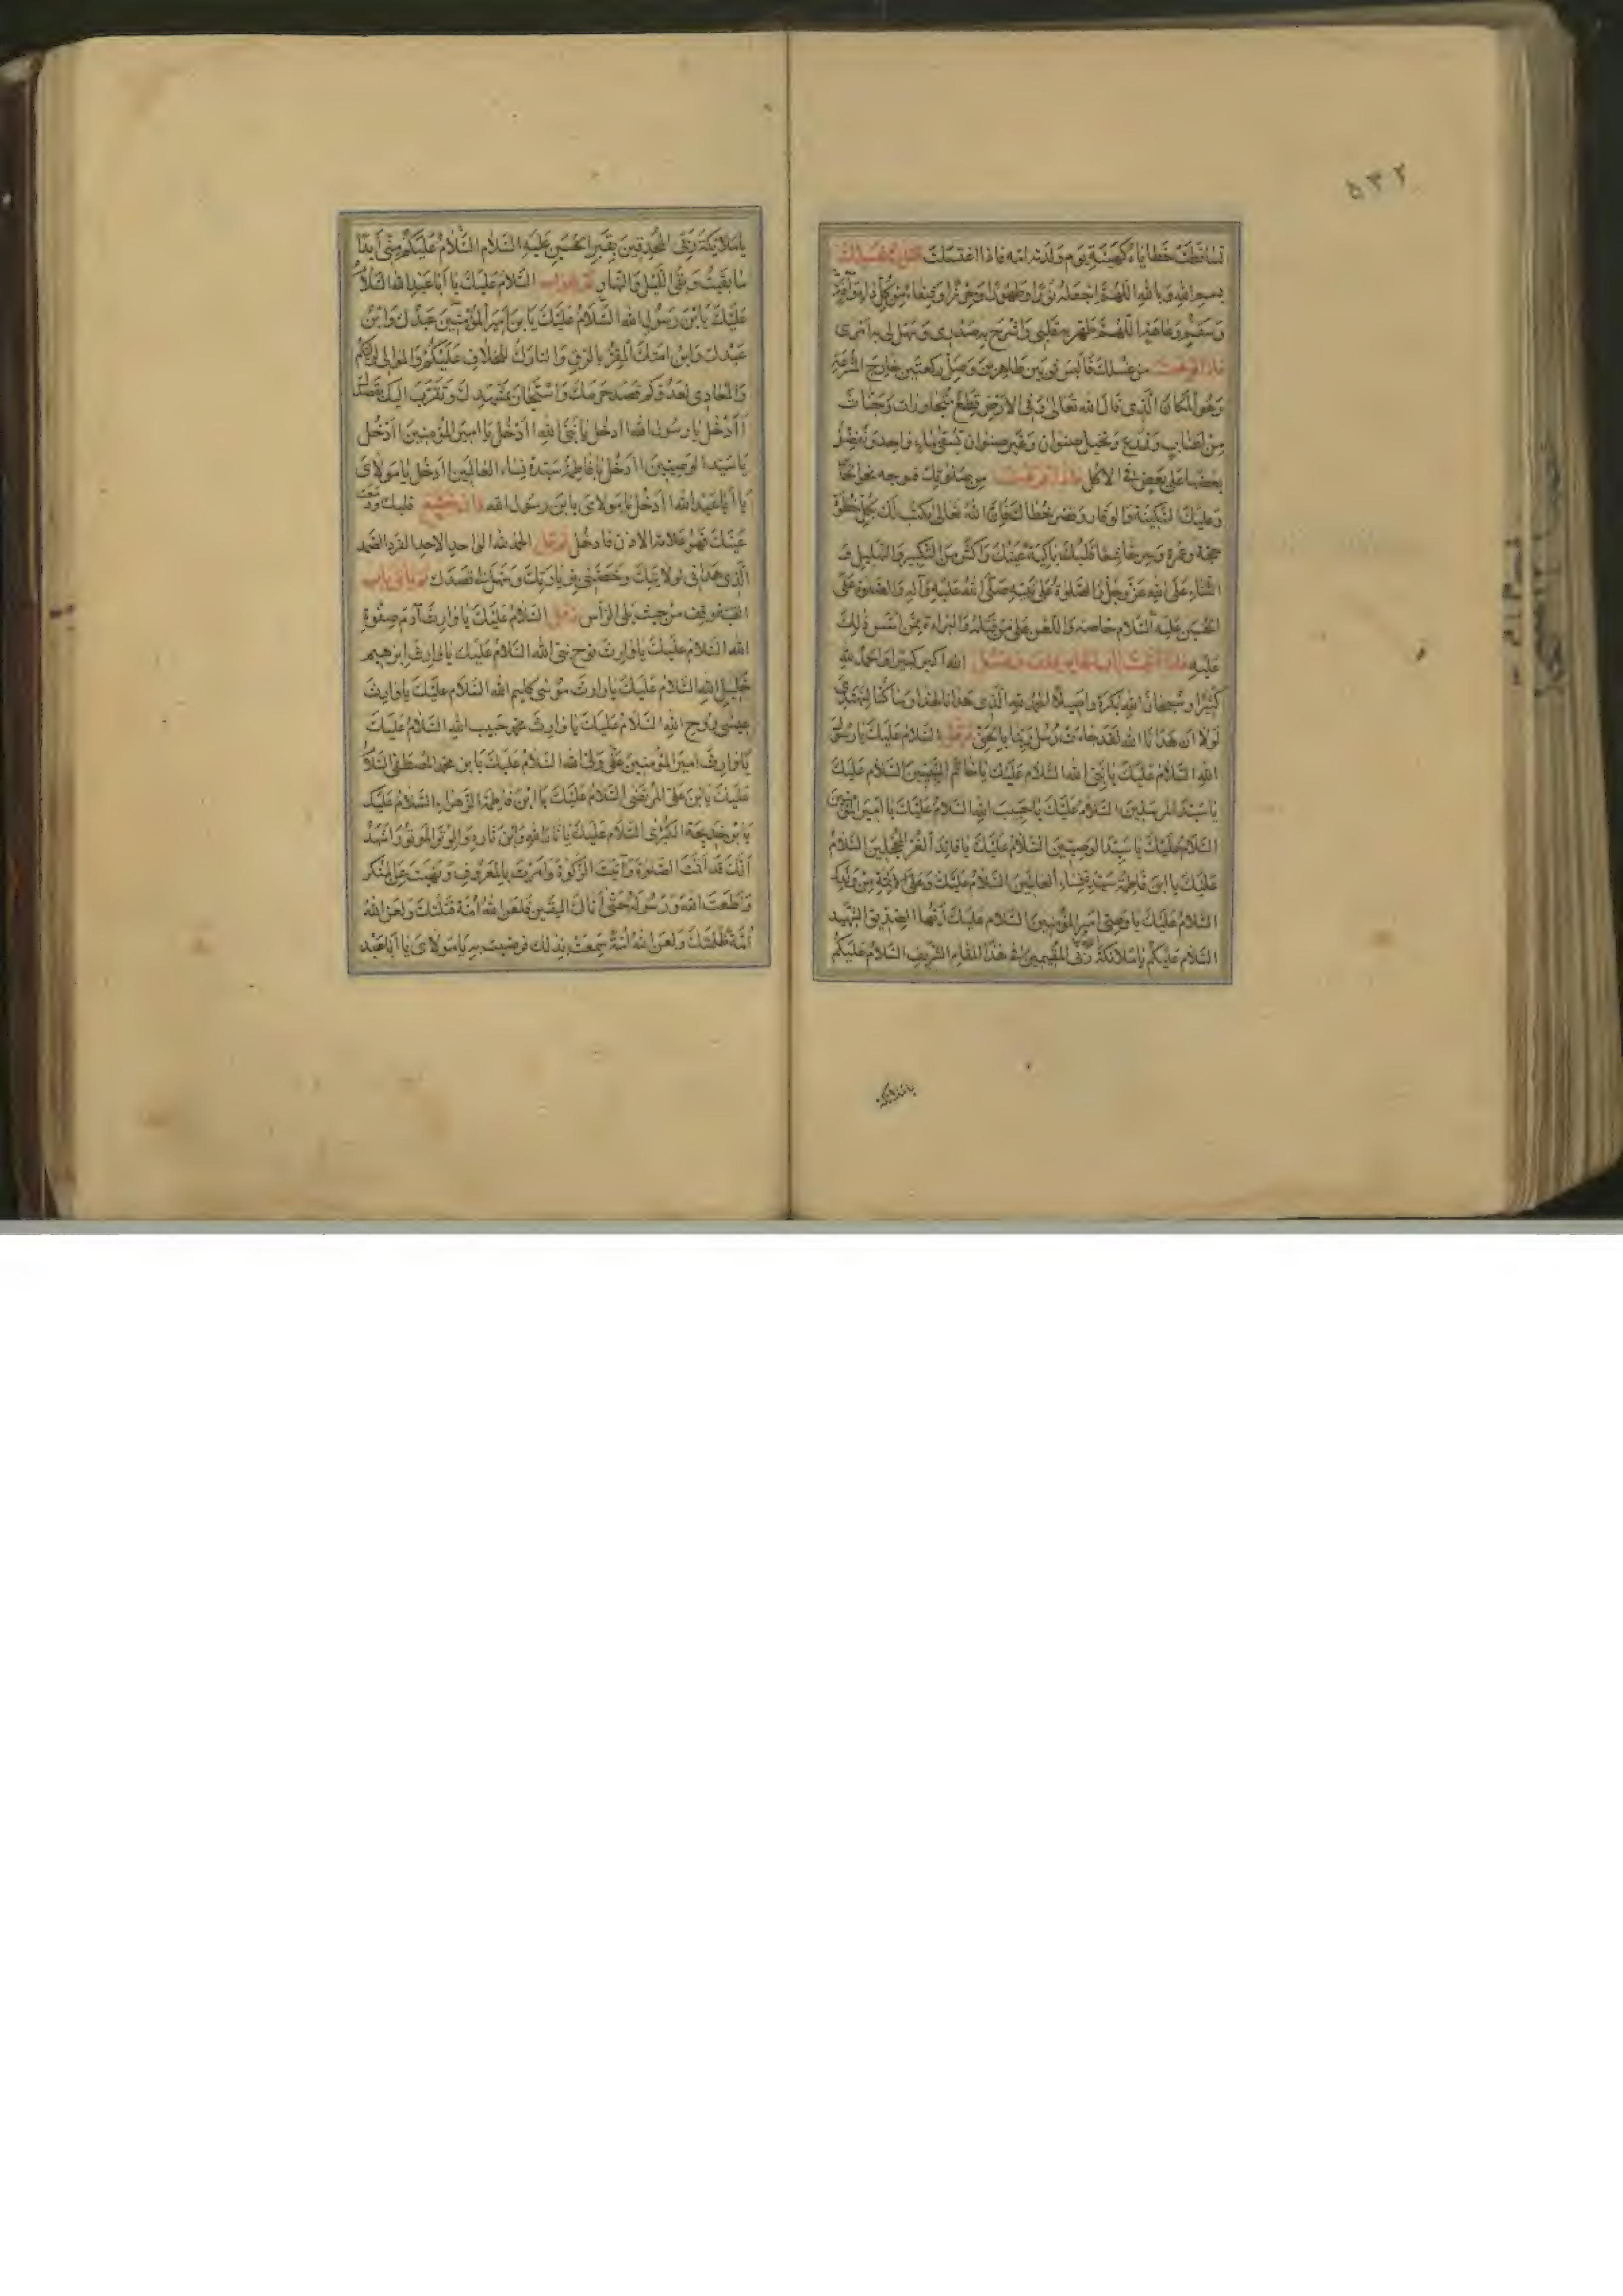 ۵۳۲
تساقطت خطاياه كهيئة يوم ولدته امه فاذا اغتسلت فقل في غسلك
بسم الله وبالله اللهم اجعله نورا وطهورا وحرزا وشفاء من كل داء وآفة
وسقم وعاهة اللهم طهر به قلبي واشرح به صدري وسهل لي به امري
فاذا فرغت من غسلك فالبس ثوبين طاهرين وصل ركعتين خارج المشرعة
وهو المكان الذي قال الله تعالى وفي الارض قطع متجاورات وجنات
من اعناب وزرع ونخيل صنوان وغير صنوان تسقى بماء واحد ونفضل
بعضها على بعض في الاكل فاذا فرغت من صلوتك فتوجه نحو الحائر
وعليك السكينة والوقار وقصر خطاك فان الله تعالى يكتب لك بكل خطوة
حجة وعمرة وسر خاشعا قلبك باكية عينك واكثر من التكبير والتهليل و
الثناء على الله عز وجل والصلوة على نبيه صلى الله عليه وآله والصلوة على
الحسين عليه السلام خاصة واللعن على من قتله والبراءة ممن اسس ذلك
عليه فاذا اتيت باب الحاير فقف وقل الله اكبر كبيرا والحمد لله
كثيرا وسبحان الله بكرة واصيلا الحمد لله الذي هدانا لهذا وما كنا لنهتدي
لولا ان هدانا الله لقد جاءت رسل ربنا بالحق ثم قل السلام عليك يا رسول
الله السلام عليك يا نبي الله السلام عليك يا خاتم النبيين السلام عليك
يا سيد المرسلين السلام عليك يا حبيب الله السلام عليك يا امير المؤمنين
السلام عليك يا سيد الوصيين السلام عليك يا قائد الغر المحجلين السلام
عليك يا ابن فاطمة سيدة نساء العالمين السلام عليك وعلى الائمة من ولدك
السلام عليك يا وصي امير المؤمنين السلام عليك ايها الصديق الشهيد
السلام عليكم يا ملائكة ربي المقيمين في هذا المقام الشريف السلام عليكم
يا ملائكة
يا ملائكة ربي المحدقين بقبر الحسين عليه السلام السلام عليكم مني ابدا
ما بقيت وبقي الليل والنهار ثم تقول السلام عليك يا ابا عبد الله السلام
عليك يا ابن رسول الله السلام عليك يا بن امير المؤمنين عبدك وابن
عبدك وابن امتك المقر بالرق والتارك للخلاف عليكم والموالي لوليكم
والمعادي لعدوكم قصد حرمك واستجار بمشهدك وتقرب اليك بقصدك
أادخل يا رسول الله أادخل يا نبي الله أادخل يا امير المؤمنين أادخل
يا سيد الوصيين أادخل يا فاطمة سيدة نساء العالمين أادخل يا مولاى
يا ابا عبد الله أادخل يا مولاى يا بن رسول الله فان خشع قلبك ودمعت
عينك فهو علامة الاذن فادخل ثم قل الحمد لله الواحد الاحد الفرد الصمد
الذي هداني لولايتك وخصني بزيارتك وسهل لي قصدك ثم تأتي باب
القبة وقف من حيث يلي الرأس وقل السلام عليك يا وارث آدم صفوة
الله السلام عليك يا وارث نوح نبي الله السلام عليك يا وارث ابرهيم
خليل الله السلام عليك يا وارث موسى كليم الله السلام عليك يا وارث
عيسى روح الله السلام عليك يا وارث محمد حبيب الله السلام عليك
يا وارث امير المؤمنين على ولى الله السلام عليك يا بن محمد المصطفى السلام
عليك يا بن على المرتضى السلام عليك يا ابن فاطمة الزهراء السلام عليك
يا بن خديجة الكبرى السلام عليك يا ثار الله وابن ثاره والوتر الموتور اشهد
انك قد اقمت الصلوة وآتيت الزكوة وامرت بالمعروف ونهيت عن المنكر
واطعت الله ورسوله حتى اتاك اليقين فلعن الله امة قتلتك ولعن الله
امة ظلمتك ولعن الله امة سمعت بذلك فرضيت به يا مولاى يا ابا عبد